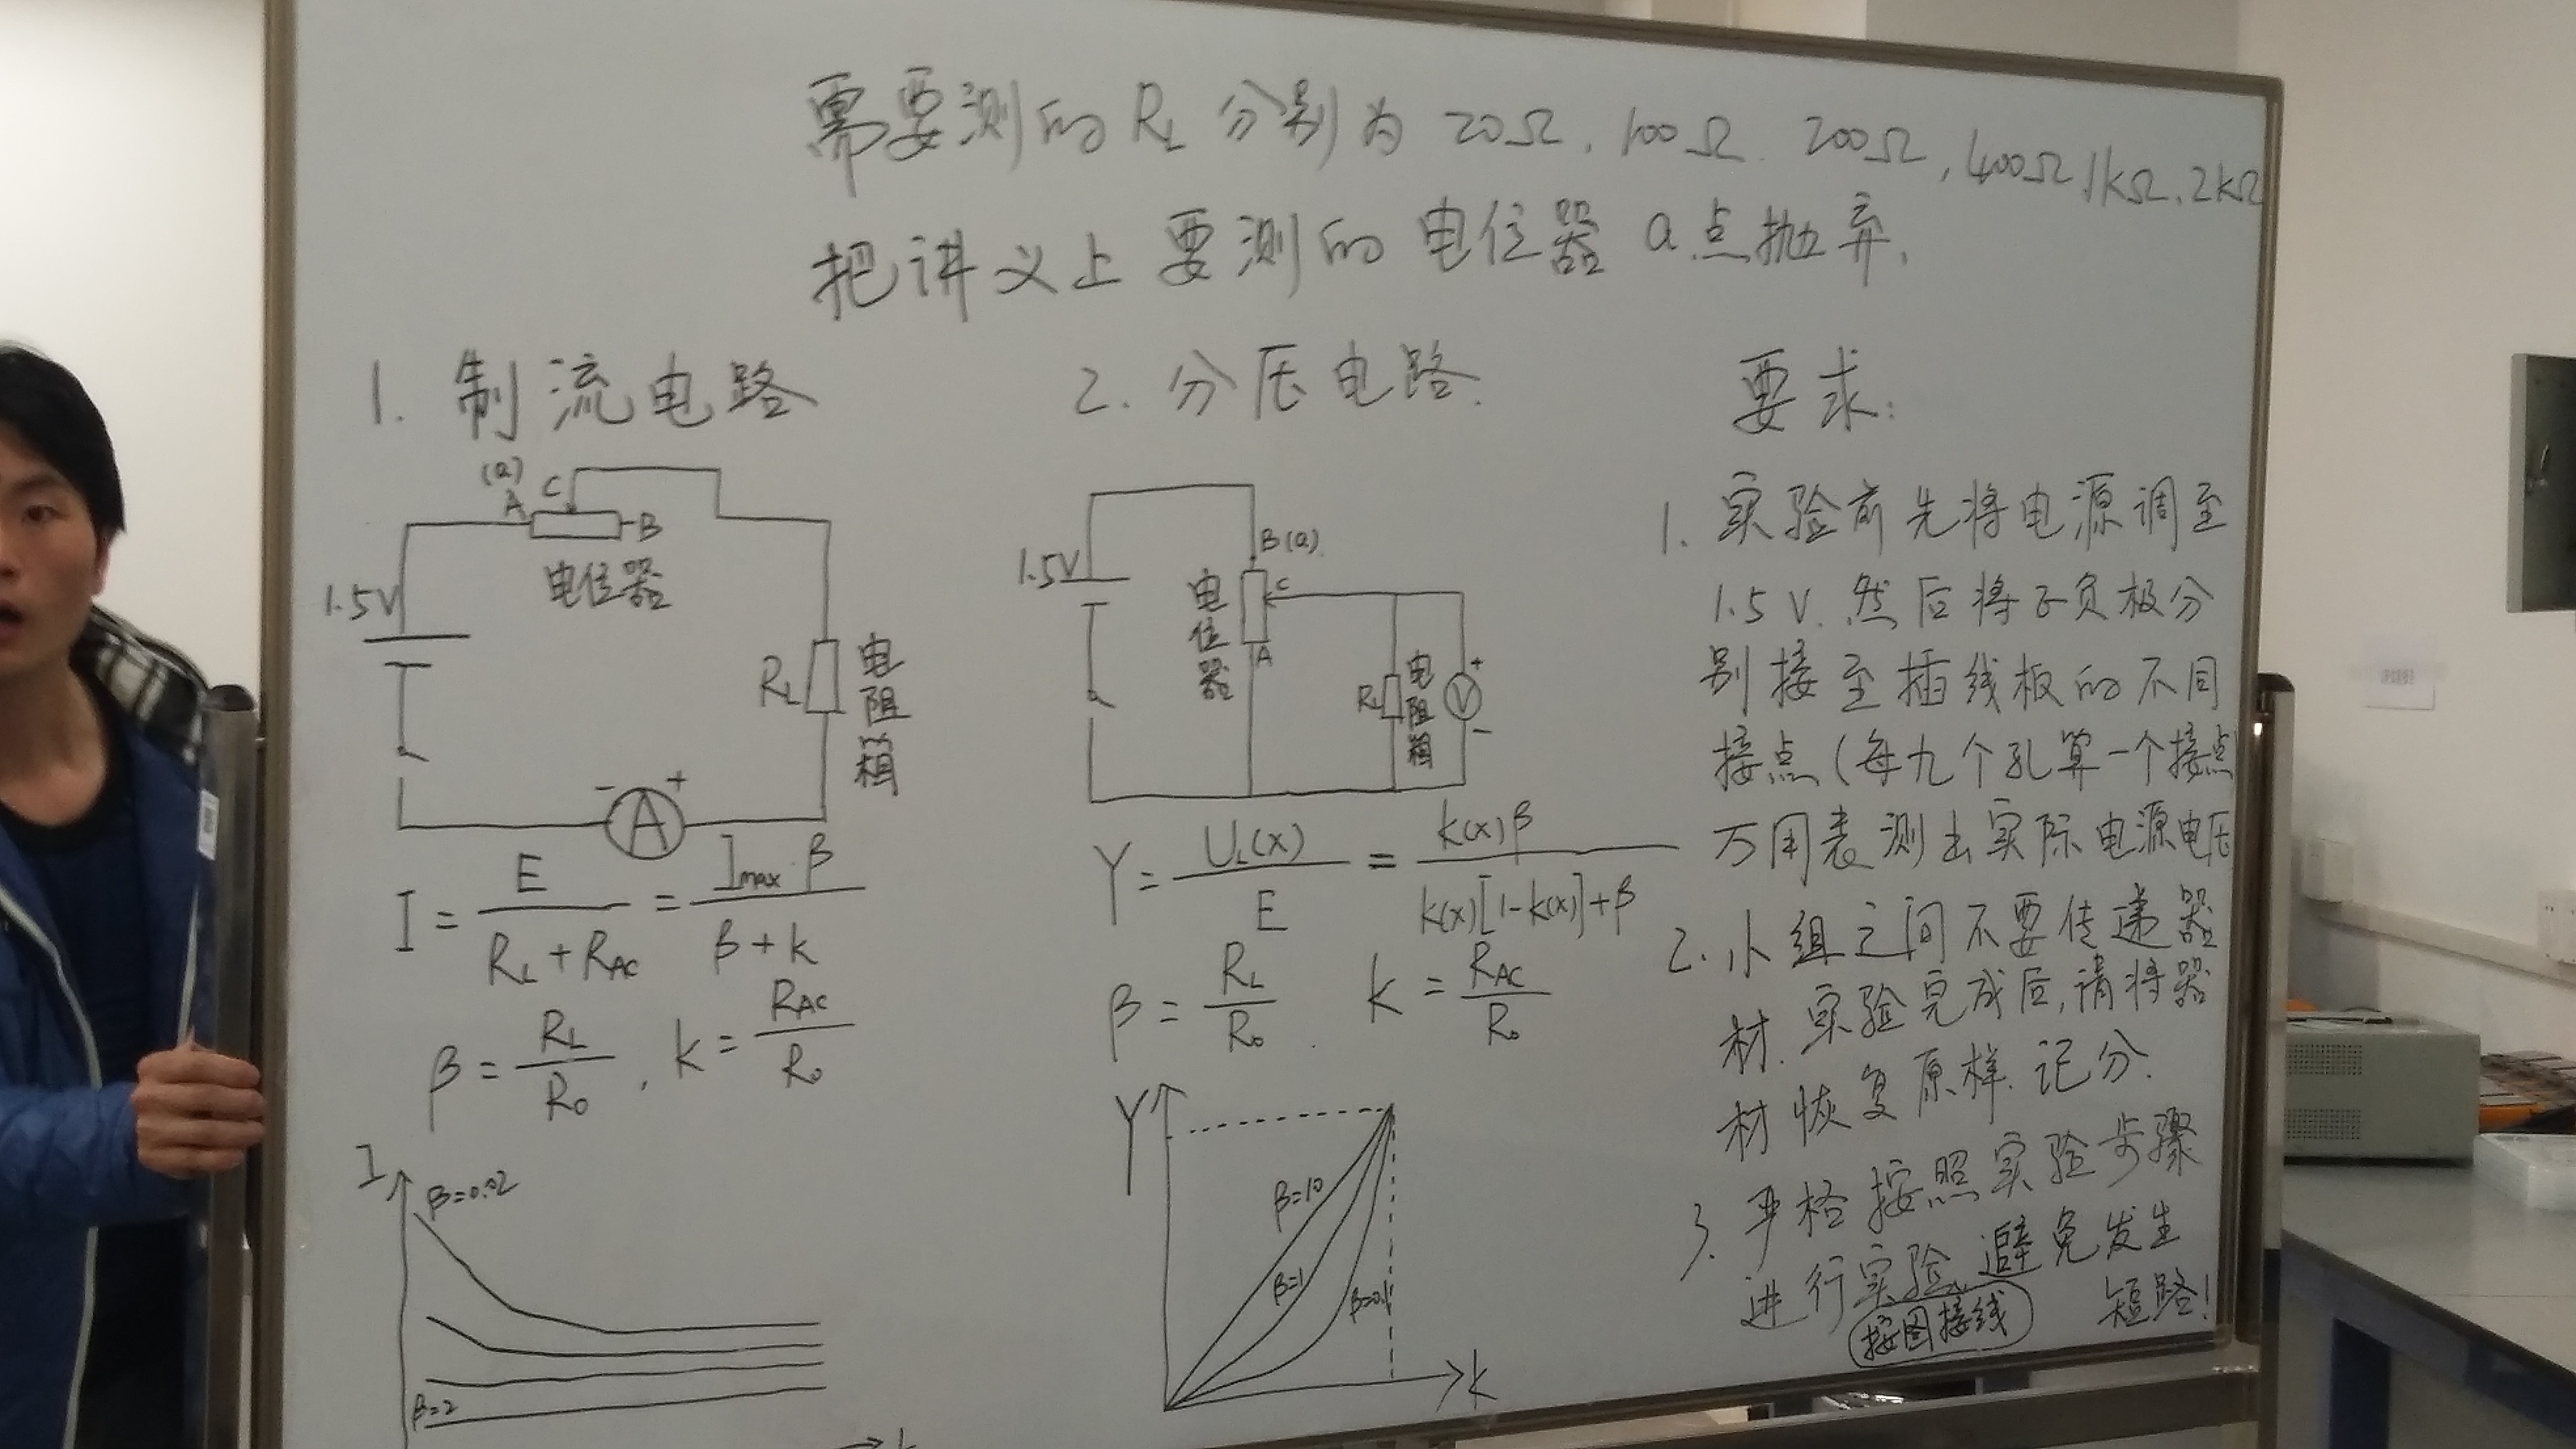 需要测的 R_L 分别为 20Ω, 100Ω. 200Ω, 400Ω, 1kΩ, 2kΩ
把讲义上要测的电位器 a点抛弃.
1. 制流电路
(a)
A C
B
电位器
1.5V
R_L 电阻箱
- A +
I = E / (R_L + R_AC) = I_max · β / (β + k)
β = R_L / R_0 , k = R_AC / R_0
I
β=0.02
β=2
k
2. 分压电路.
1.5V
B(a)
C
A
电位器
R_L 电阻箱
+
V
-
Y = U_L(x) / E = k(x)β / (k(x)[1-k(x)]+β)
β = R_L / R_0 . k = R_AC / R_0
Y
β=10
β=1
β=0.1
k
要求:
1. 实验前先将电源调至
1.5V. 然后将正负极分
别接至插线板的不同
接点(每九个孔算一个接点)
万用表测出实际电源电压
2. 小组之间不要传递器
材. 实验完成后, 请将器
材恢复原样. 记分.
3. 严格按照实验步骤
进行实验, 避免发生
按图接线
短路!